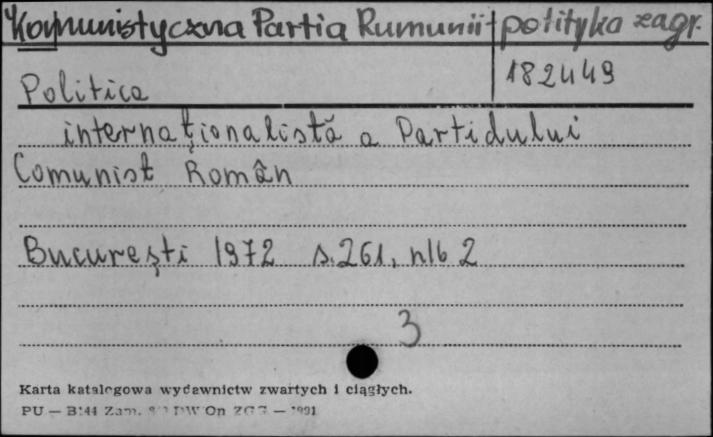 Komunistyczna Partia Rumunii + polityka zagr.
Politica 182449
internaţionalistă a Partidului
Comunist Român
Bucureşti 1972 s.261, nlb 2
3
Karta katalogowa wydawnictw zwartych i ciągłych.
PU — B144 Zam. DW On ZGZ —